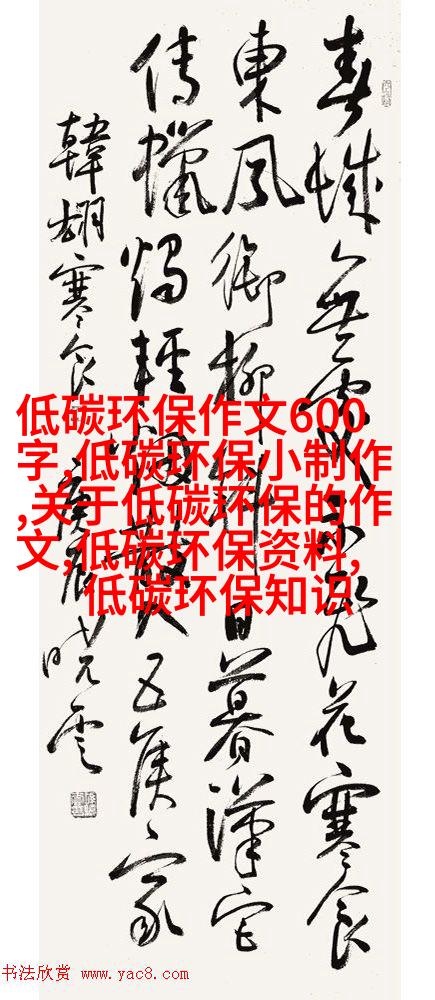 春城無處不飛花寒食
東風御柳斜日暮漢宮
傳蠟燭輕煙散入五侯家
韓翃寒食 庚辰 曉雲
低碳环保作文600
字,低碳环保小制作
,关于低碳环保的作
文,低碳环保资料,
低碳环保知识
书法欣赏 www.yac8.com